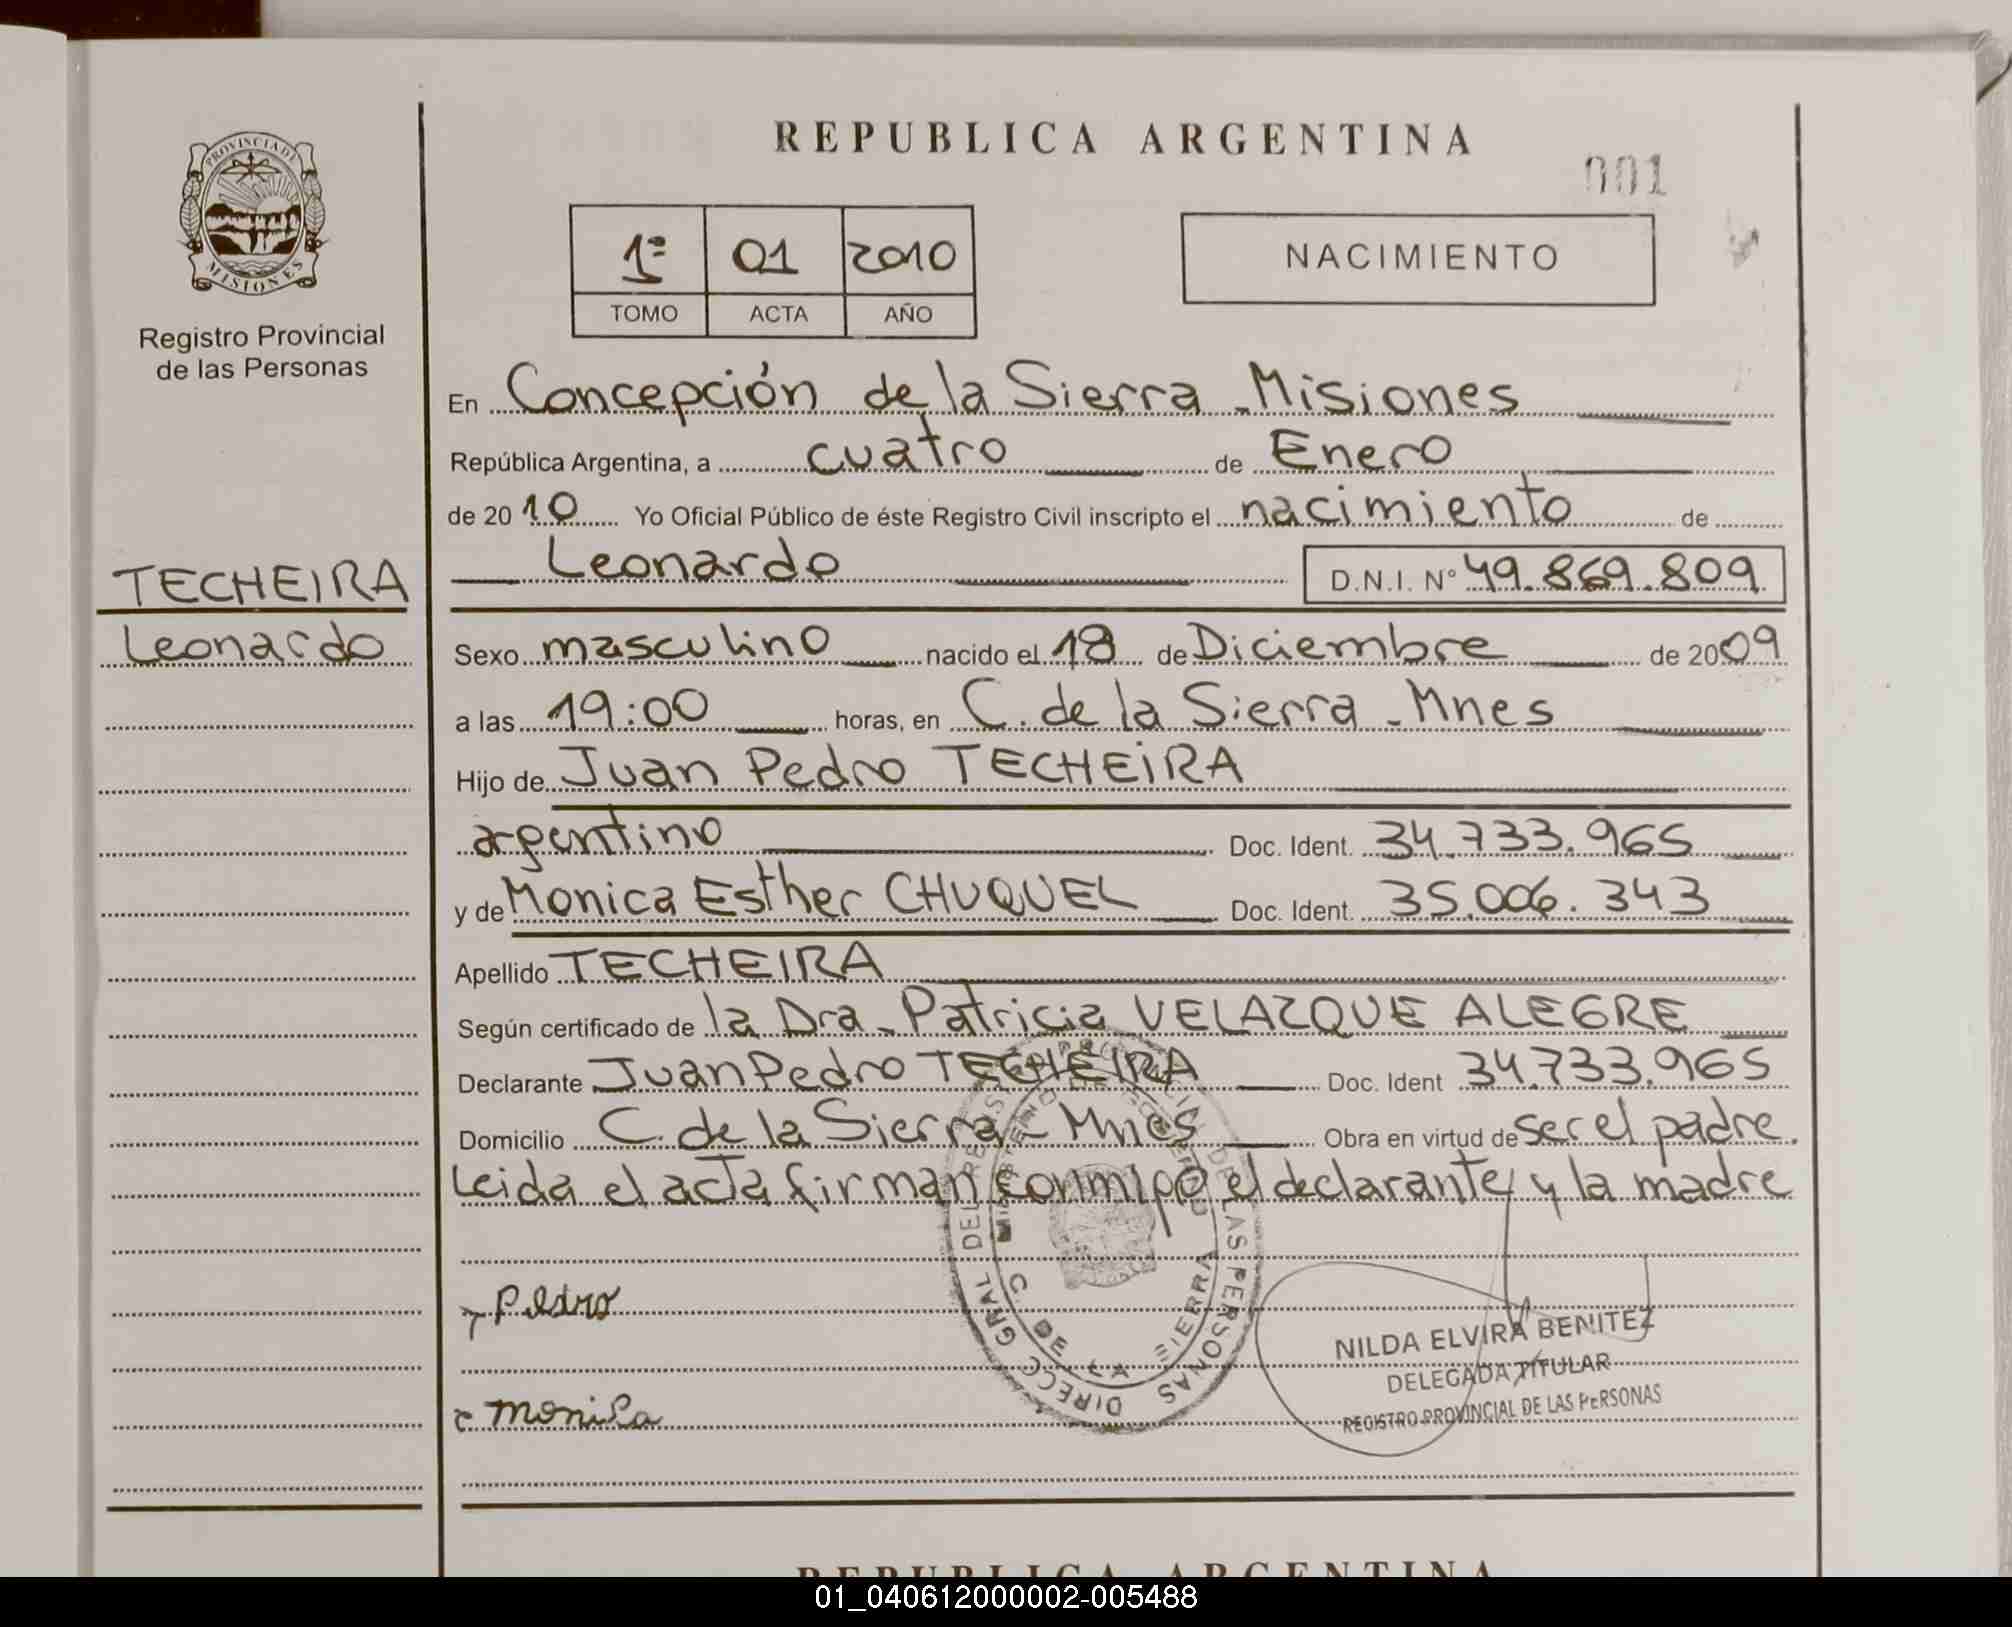 REPUBLICA ARGENTINA
001
PROVINCIA DE
MISIONES
Registro Provincial
de las Personas
1º 01 2010
TOMO ACTA AÑO
NACIMIENTO
En Concepción de la Sierra - Misiones
República Argentina, a cuatro de Enero
de 2010 Yo Oficial Público de éste Registro Civil inscripto el nacimiento de
Leonardo D.N.I. Nº 49.869.809
TECHEIRA
Leonardo
Sexo masculino nacido el 18 de Diciembre de 2009
a las 19:00 horas, en C. de la Sierra - Mnes
Hijo de Juan Pedro TECHEIRA
argentino Doc. Ident. 34.733.965
y de Monica Esther CHUQUEL Doc. Ident. 35.006.343
Apellido TECHEIRA
Según certificado de la Dra. Patricia VELAZQUE ALEGRE
Declarante Juan Pedro TECHEIRA Doc. Ident 34.733.965
Domicilio C. de la Sierra - Mnes Obra en virtud de ser el padre.
Leida el acta firman conmigo el declarante y la madre
Pedro
Monica
DIRECC GRAL DEL REGISTRO PROVINCIAL DE LAS PERSONAS
C. DE LA SIERRA
NILDA ELVIRA BENITEZ
DELEGADA TITULAR
REGISTRO PROVINCIAL DE LAS PERSONAS
REPUBLICA ARGENTINA
01_040612000002-005488